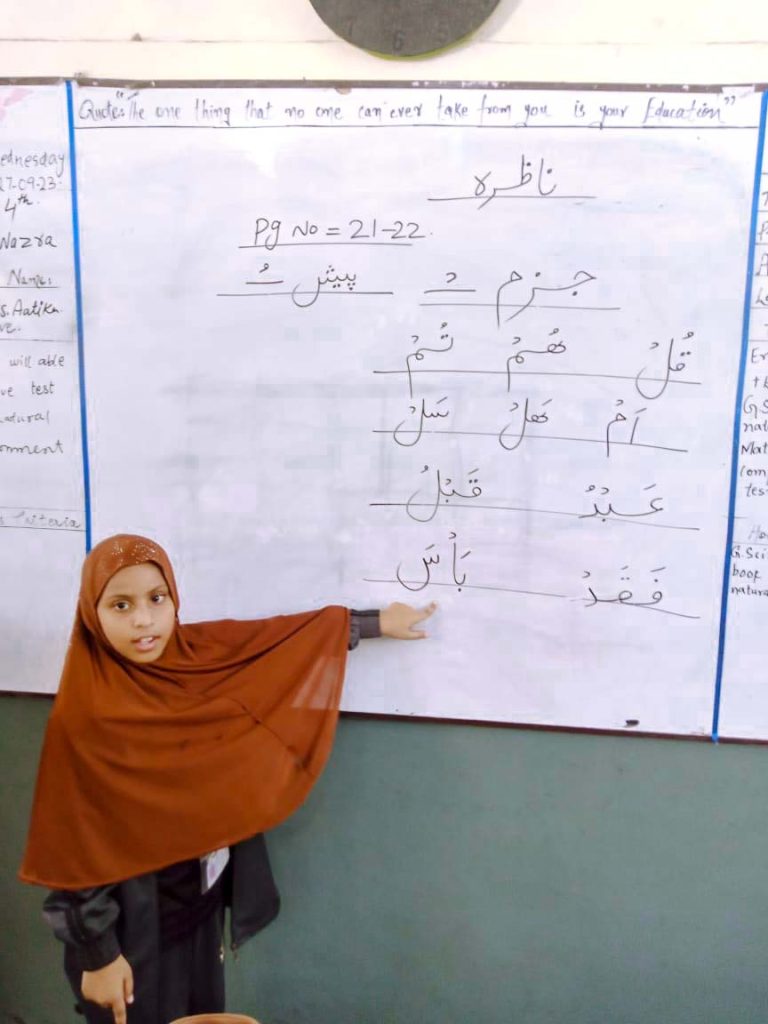 Quote: "The one thing that no one can ever take from you is your Education"
ناظرہ
Pg No = 21-22.
جزم ـْ پیش ـُ
قُلْ هُمْ تُمْ
اَمْ هَلْ سَلْ
عَبْدُ قَبْلُ
فَقَدْ بَأْسَ
ednesday
27-09-23:
4th.
Nazra
Name:
s. Aatika.
ve.
will able
ve test
natural
onment
Criteria
G.S
nat
Mat
Com
tes
G.Sci
book
natura